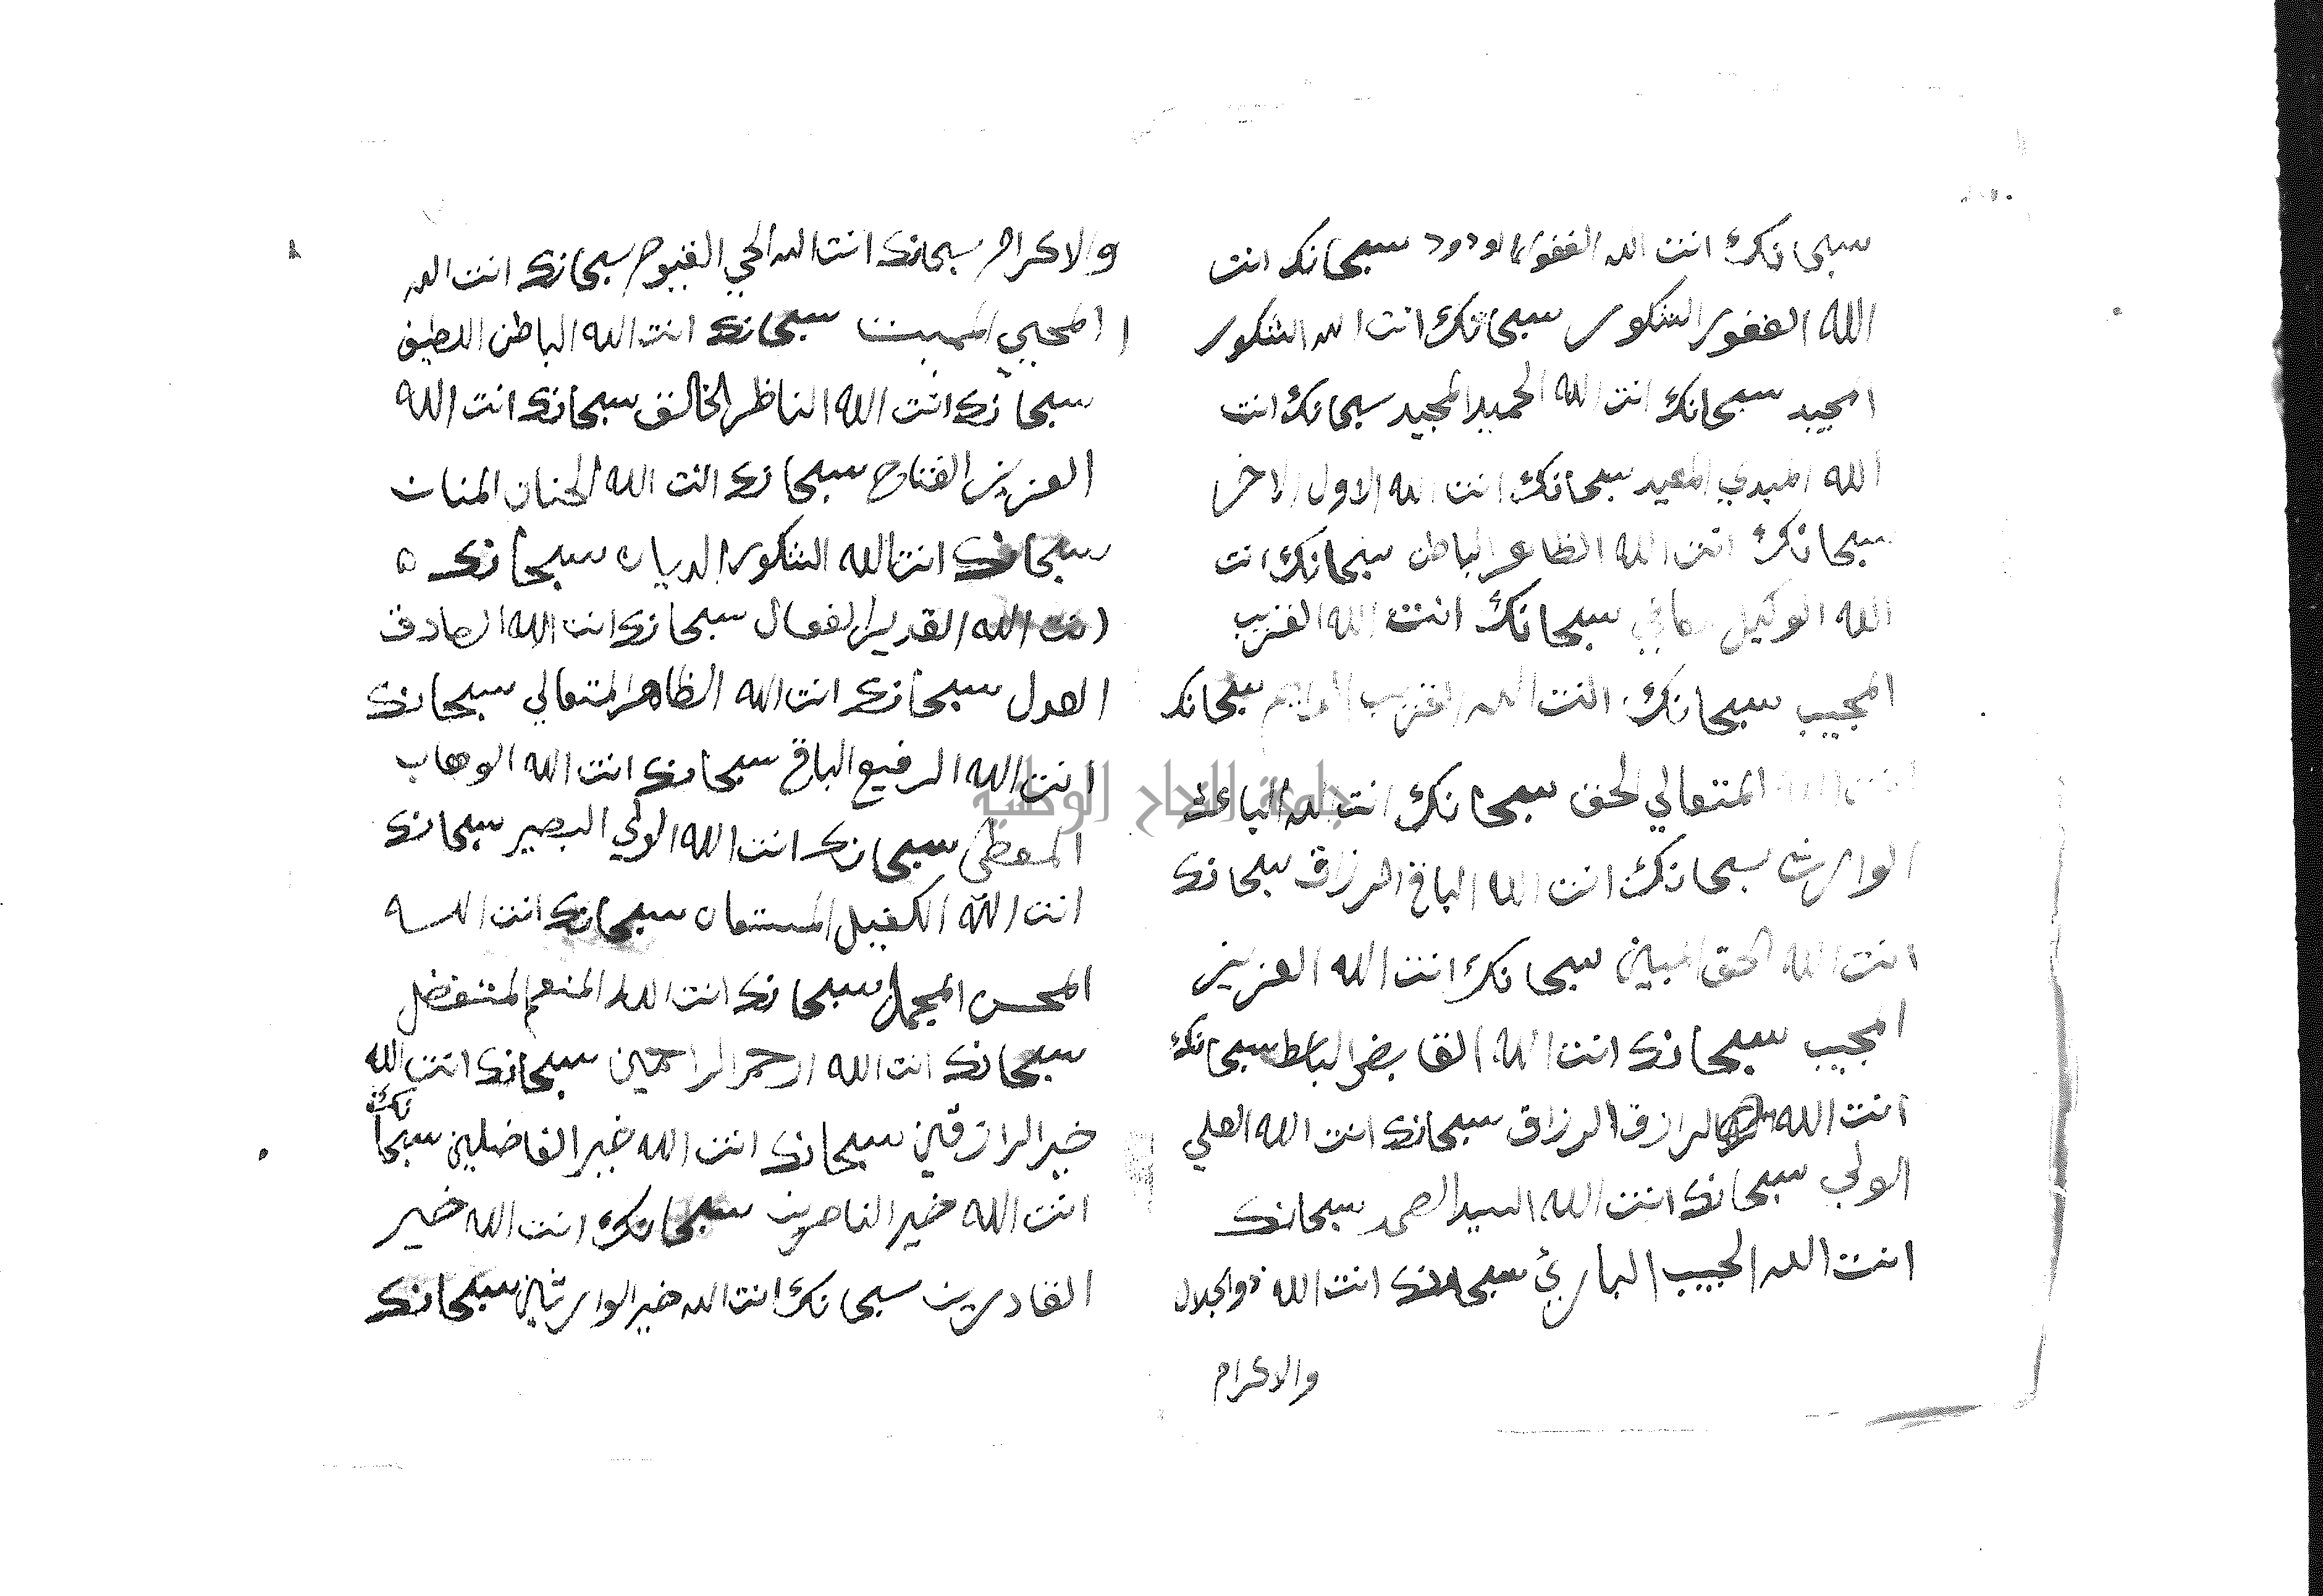 سبحانك انت الله الغفور الودود سبحانك انت
الله الغفور الشكور سبحانك انت الله الشكور
المجيد سبحانك انت الله الحميد المجيد سبحانك انت
الله المبدي المعيد سبحانك انت الله الاول الاخر
سبحانك انت الله الظاهر الباطن سبحانك انت
الله الوكيل سبحانك انت الله القريب
المجيب سبحانك انت الله القريب سبحانك
انت الله المتعالي الحق سبحانك انت الله الباعث
الوارث سبحانك انت الله الباقي الرزاق سبحانك
انت الله الحق المبين سبحانك انت الله العزيز
المجيب سبحانك انت الله القابض الباسط سبحانك
انت الله الرازق الرزاق سبحانك انت الله العلي
الولي سبحانك انت الله السيد الصمد سبحانك
انت الله الحبيب الباريء سبحانك انت الله ذوالجلال
والاكرام
والاكرام سبحانك انت الله الحي القيوم سبحانك انت الله
المحيي المميت سبحانك انت الله الباطن اللطيف
سبحانك انت الله الناظر الخالق سبحانك انت الله
العزيز الفتاح سبحانك انت الله الحنان المنان
سبحانك انت الله الشكور الديان سبحانك
انت الله القدير الفعال سبحانك انت الله الصادق
العدل سبحانك انت الله الظاهر المتعالي سبحانك
انت الله الرفيع الباقي سبحانك انت الله الوهاب
المعطي سبحانك انت الله الولي البصير سبحانك
انت الله الكفيل المستعان سبحانك انت الله
المحسن المجمل سبحانك انت الله المنعم المتفضل
سبحانك انت الله ارحم الراحمين سبحانك انت الله
خير الرازقين سبحانك انت الله خير الفاضلين سبحانك
انت الله خير الناصرين سبحانك انت الله خير
القادرين سبحانك انت الله خير الوارثين سبحانك
جامعة النجاح الوطنية